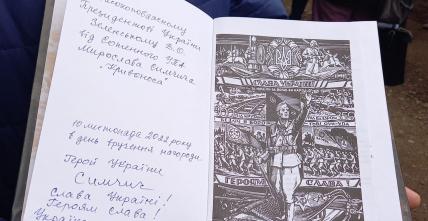 Високоповажному
Президентові України
Зеленському В.О.
від Сотенного УПА
Мирослава Симчича
"Кривоноса"
10 листопада 2022 року
в день вручення нагороди
Герой України
Симчич
Слава Україні!
Героям Слава!
Україна
СЛАВА УКРАЇНІ
ГЕРОЯМ СЛАВА!